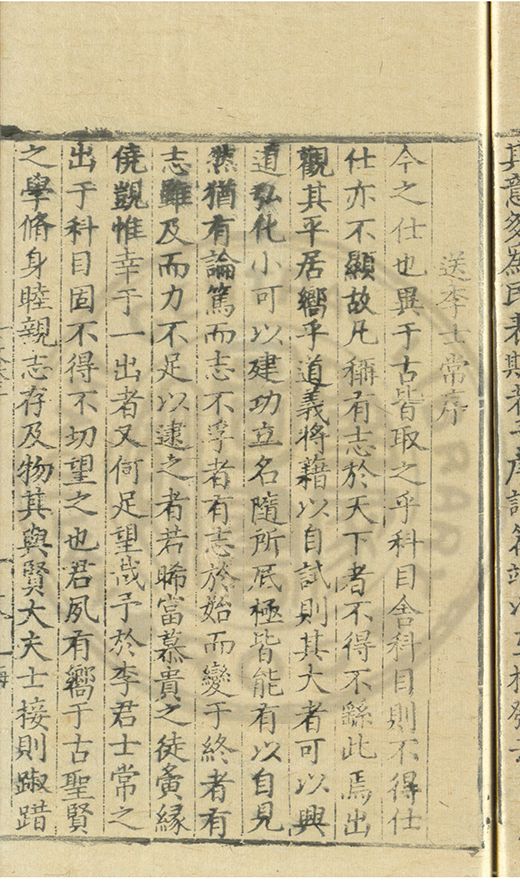 送李士常序
今之仕也異于古皆取之乎科目舍科目則不得仕
仕亦不顯故凡稱有志於天下者不得不繇此焉出
觀其平居嚮乎道義將藉以自試則其大者可以興
道弘化小可以建功立名隨所底極皆能有以自見
然猶有論篤而志不孚者有志於始而變于終者有
志雖及而力不足以逮之者若睎富慕貴之徒夤緣
僥覬惟幸于一出者又何足望哉予於李君士常之
出于科目固不得不切望之也君夙有嚮于古聖賢
之學脩身睦親志存及物其與賢大夫士接則踧踖